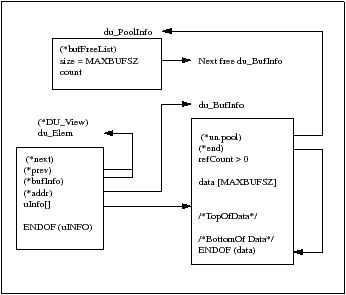 du_PoolInfo
(*bufFreeList)
size = MAXBUFSZ
count
Next free du_BufInfo
du_BufInfo
(*DU_View)
du_Elem
(*un.pool)
(*end)
refCount > 0
data [MAXBUFSZ]
/*TopOfData*/
/*BottomOf Data*/
ENDOF (data)
(*next)
(*prev)
(*bufInfo)
(*addr)
uInfo[]
ENDOF (uINFO)